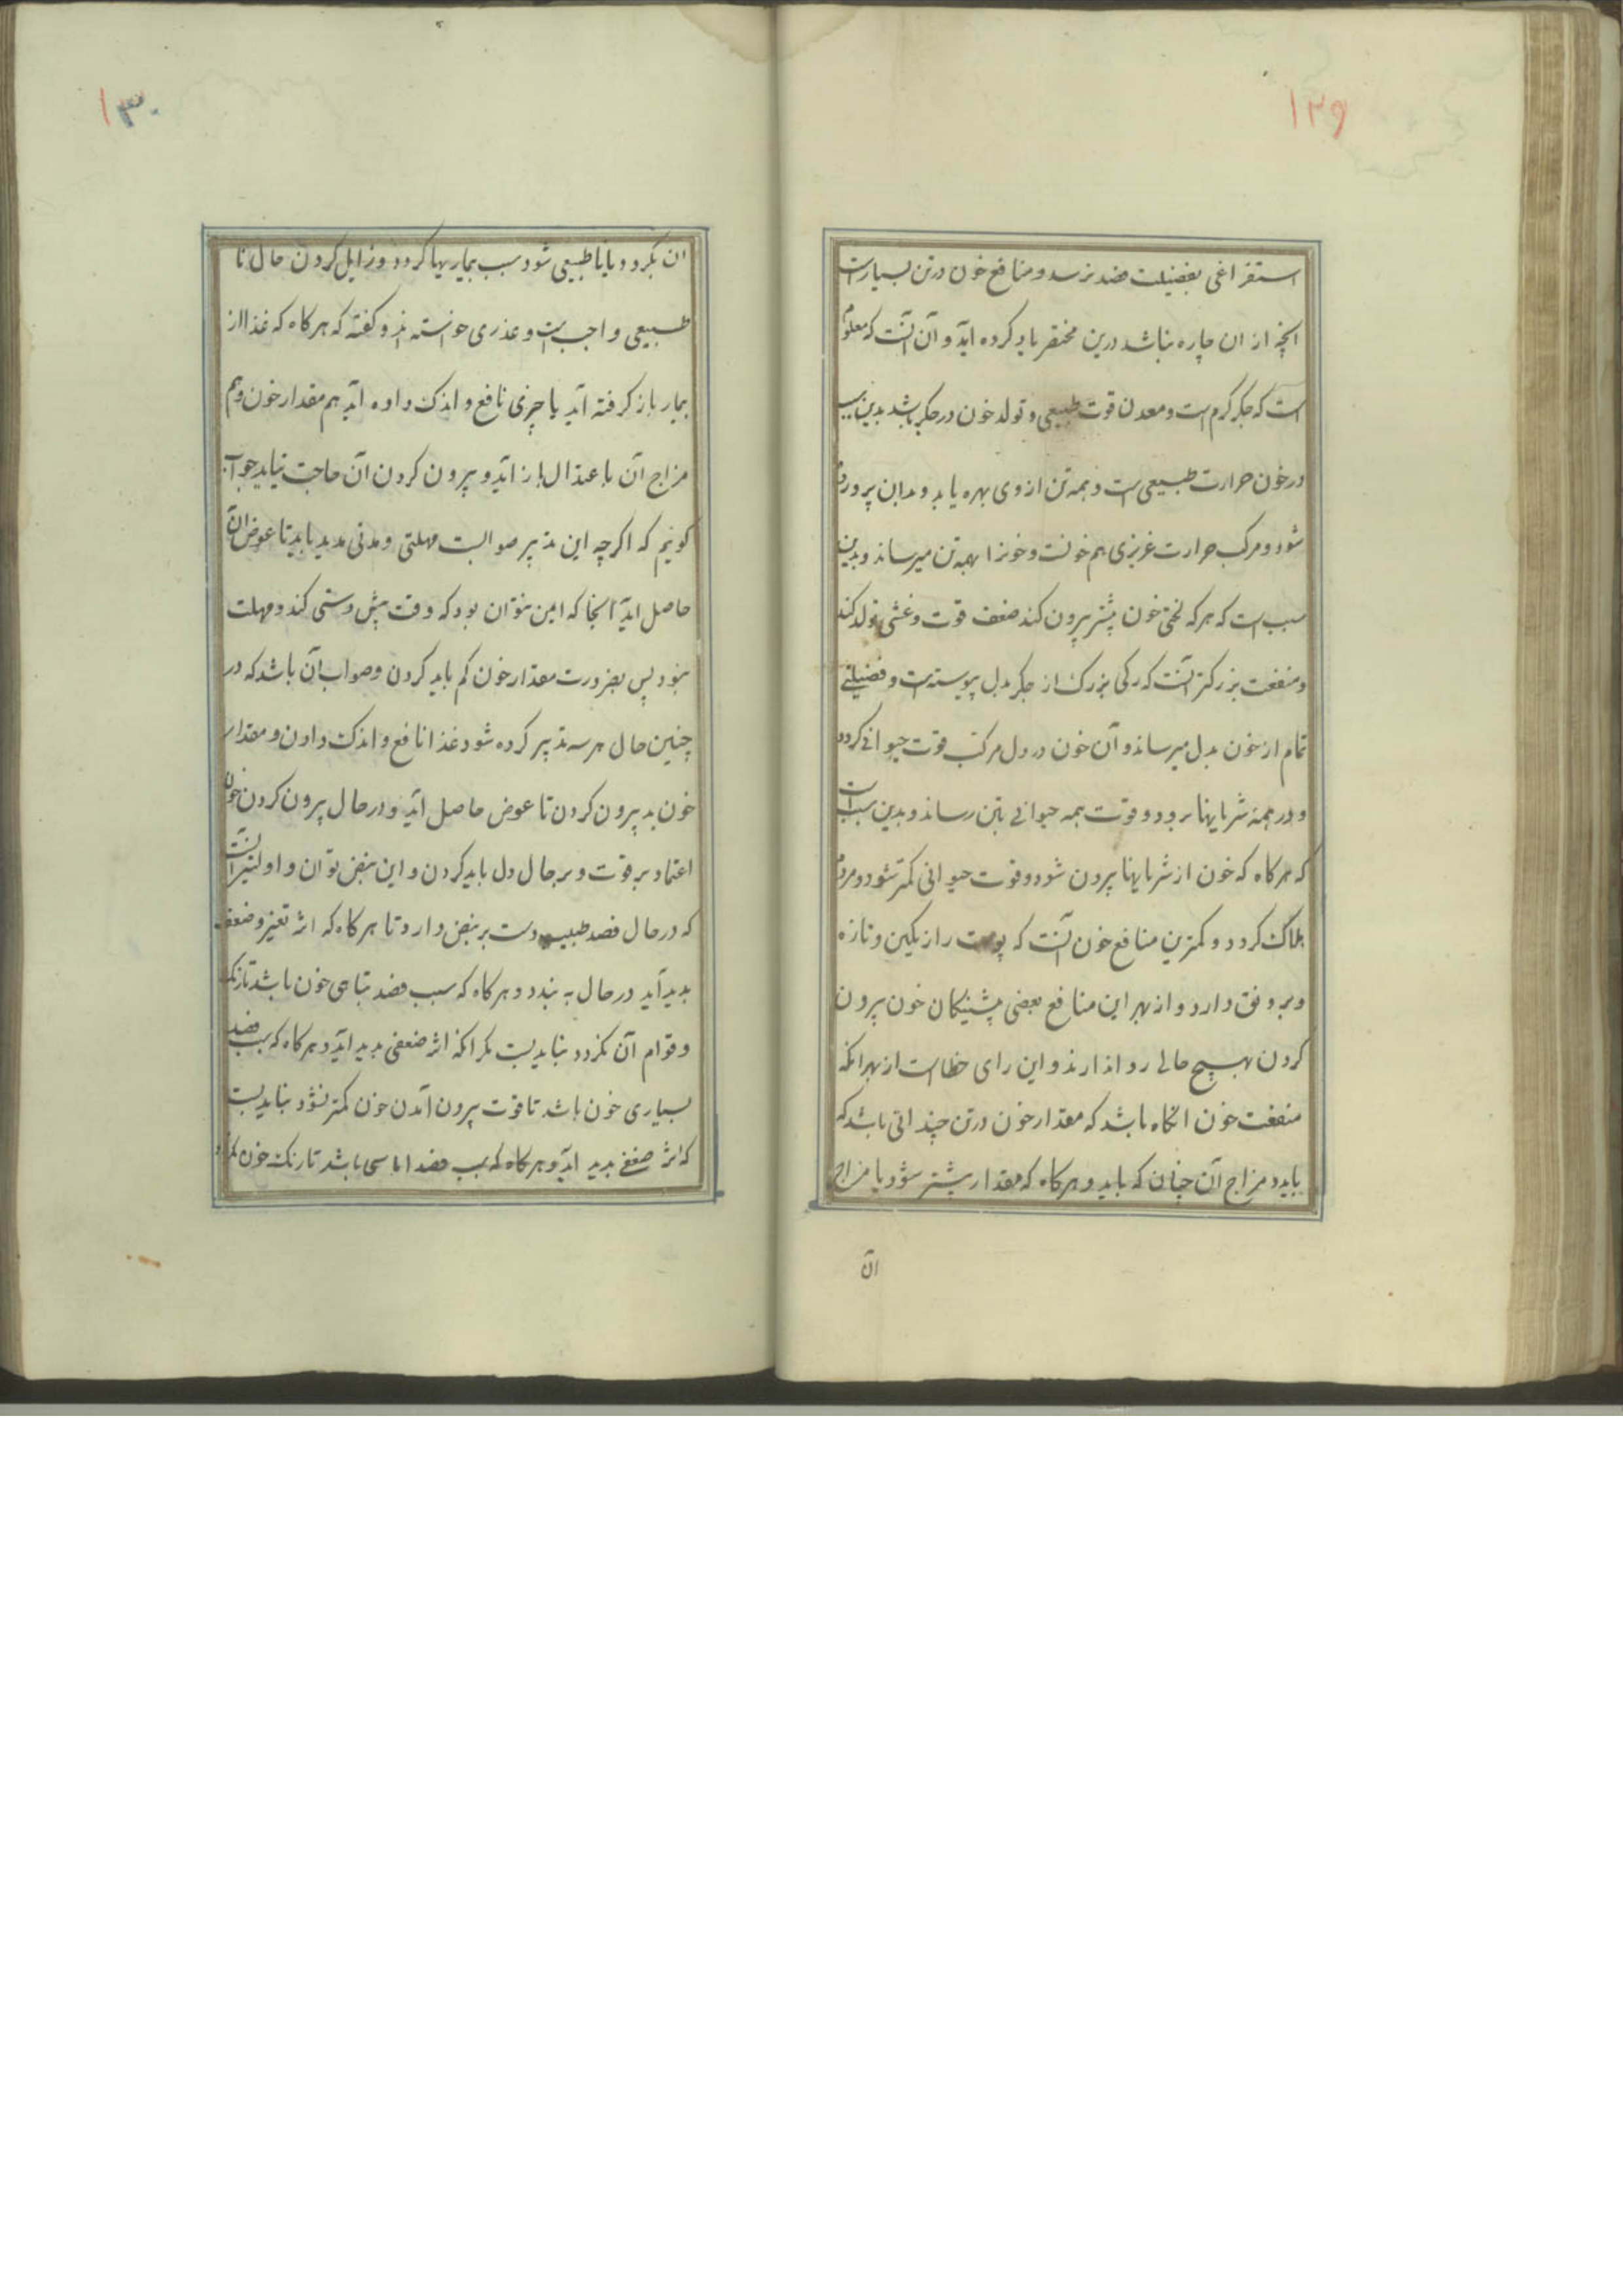 ۱۲۹
استفراغی بفضیلت فصد نرسد و منافع خون در تن بسیارست
انچه از ان چاره نباشد درین مختصر یاد کرده آید و آن آنست که معلوم
است که جگر گرم است و معدن قوت طبیعی و تولد خون در جگر باشد بدین سبب
در خون حرارت طبیعی است و همه تن از وی بهره یابد و بدان پرورده
شود و مرکب حرارت غریزی هم خونست و خونرا بهمه تن میرساند و بدین
سبب است که هرکه لختی خون بیشتر بیرون کند ضعف قوت و غشی تولد کند
و منفعت بزرکتر آنست که رکی بزرک از جکر بدل پیوسته است و فضیلتی
تمام از خون بدل میرساند و آن خون در دل مرکب قوت حیوانی کردد
و در همه شریانها برود و قوت همه حیوانی بتن رساند و بدین سبب است
که هرکاه که خون از شریانها بیرون شود و قوت حیوانی کمتر شود و مردم
هلاک کردد و کمترین منافع خون آنست که پوست را رنکین و تازه
و برونق دارد و از بهر این منافع بعضی پیشینکان خون بیرون
کردن بهیچ حالی روا ندارند و این رای خطاست از بهر انکه
منفعت خون انکاه باشد که مقدار خون در تن چندانی باشد که
باید و مزاج آن چنان که باید و هرکاه که مقدار بیشتر شود یا مزاج
آن
۱۳۰
ان بکردد و یا ناطبیعی شود سبب بیماریها کردد و زایل کردن حال نا
طبیعی واجب است و عذری خواسته اند و کفته که هرکاه که غذا از
بیمار باز کرفته آید یا چیزی نافع و اندک داده آید هم مقدار خون و هم
مزاج آن باعتدال باز آید و بیرون کردن آن حاجت نیاید جواب
کوئیم که اکرچه این تدبیر صوابست مهلتی و مدتی مدید باید تا عوض آن
حاصل آید آنجا که ایمن نتوان بود که وقت پیش دستی کند و مهلت
نبود پس بضرورت مقدار خون کم باید کردن و صواب آن باشد که در
چنین حال هر سه تدبیر کرده شود غذا نافع و اندک دادن و مقدار
خون بد بیرون کردن تا عوض حاصل آید و در حال بیرون کردن خون
اعتماد بر قوت و بر حال دل باید کردن و این بنبض توان و اولیتر آنست
که در حال فصد طبیب دست بر نبض دارد تا هرکاه که اثر تغیر و ضعف
بدید آید در حال به بندد و هرکاه که سبب فصد تباهی خون باشد تا رنک
و قوام آن نکردد نباید بست مکر انکه اثر ضعفی بدید آید و هرکاه که سبب فصد
بسیاری خون باشد تا قوت بیرون آمدن خون کمتر نشود نباید بست
که اثر ضعفی بدید آید و هرکاه که سبب فصد اماسی باشد تا رنک خون نکردد